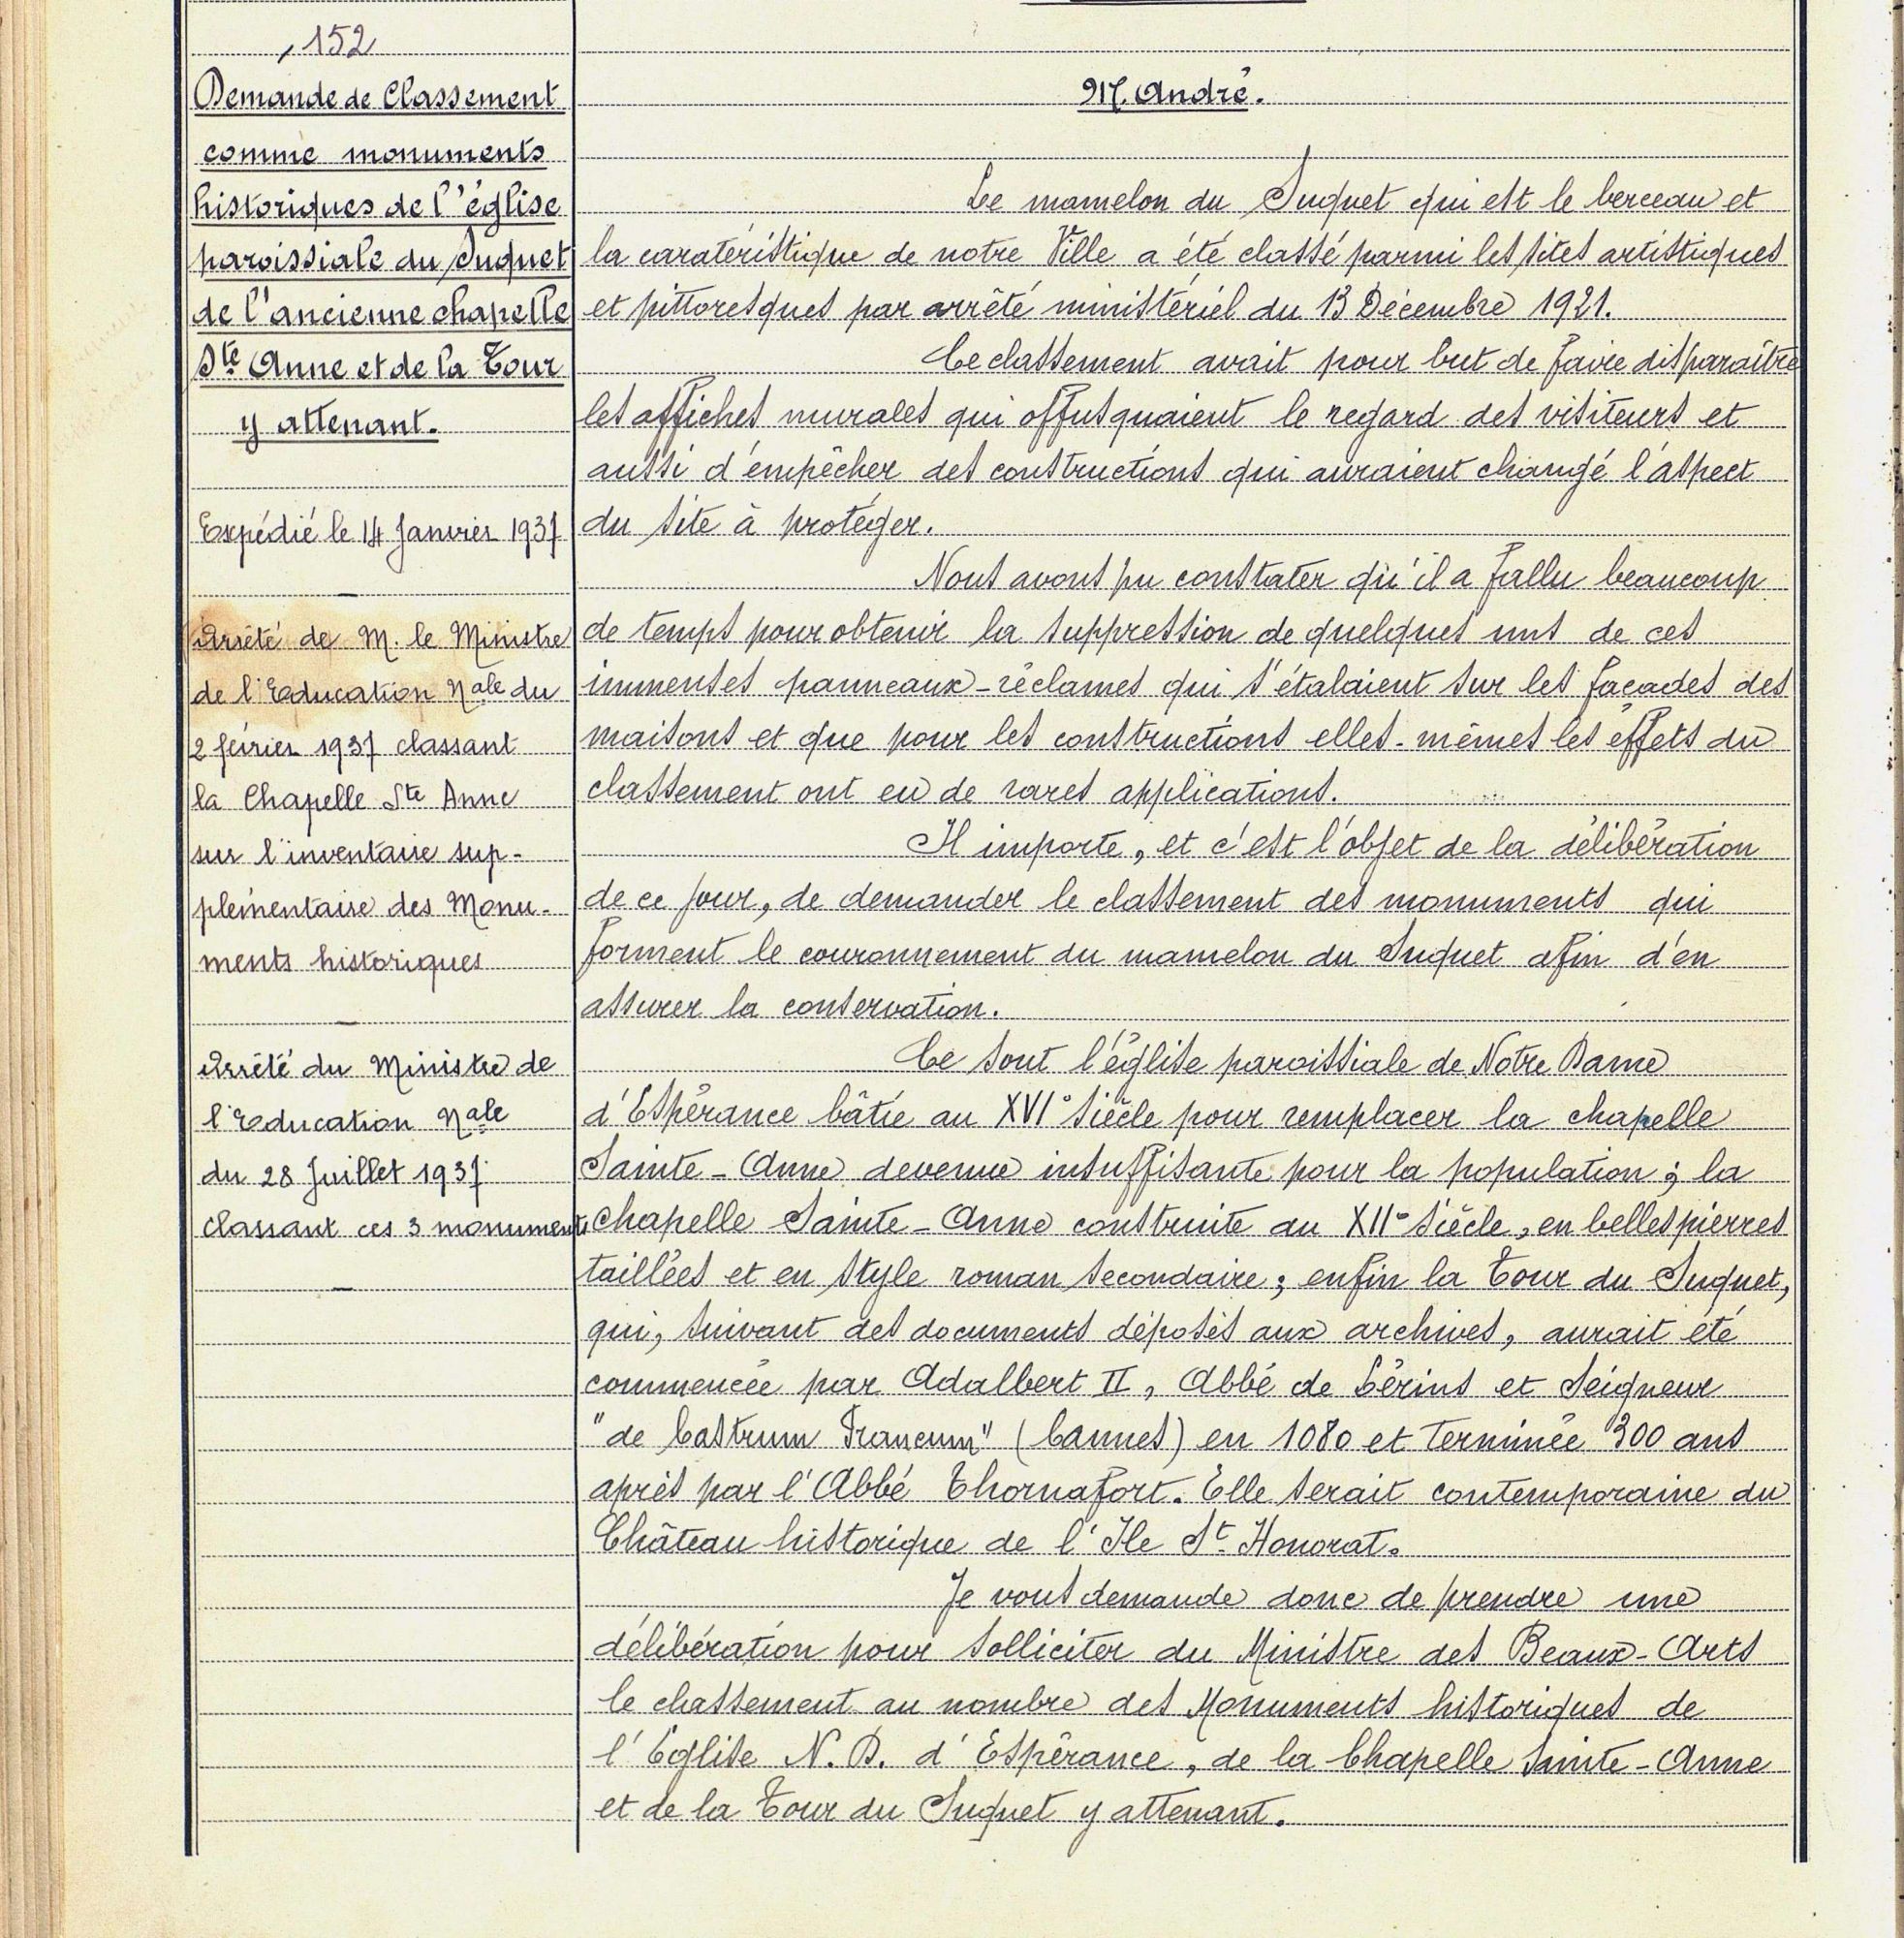 152
Demande de Classement
comme monuments
historiques de l'église
paroissiale du Suquet
de l'ancienne chapelle
Ste Anne et de la Tour
y attenant.
Expédié le 14 Janvier 1937
Arrêté de M. le Ministre
de l'Education Nale du
2 février 1937 classant
la Chapelle Ste Anne
sur l'inventaire sup-
plémentaire des Monu-
ments historiques
Arrêté du Ministre de
l'Education Nale
du 28 Juillet 1937
classant ces 3 monuments
M. André.
Le mamelon du Suquet qui est le berceau et
la caratéristique de notre Ville a été classé parmi les sites artistiques
et pittoresques par arrêté ministériel du 13 Décembre 1921.
Ce classement avait pour but de faire disparaître
les affiches murales qui offusquaient le regard des visiteurs et
aussi d'empêcher des constructions qui auraient changé l'aspect
du site à protéger.
Nous avons pu constater qu'il a fallu beaucoup
de temps pour obtenir la suppression de quelques uns de ces
immenses panneaux-réclames qui s'étalaient sur les façades des
maisons et que pour les constructions elles-mêmes les effets du
classement ont eu de rares applications.
Il importe, et c'est l'objet de la délibération
de ce jour, de demander le classement des monuments qui
forment le couronnement du mamelon du Suquet afin d'en
assurer la conservation.
Ce sont l'église paroissiale de Notre Dame
d'Espérance bâtie au XVI° siècle pour remplacer la chapelle
Sainte-Anne devenue insuffisante pour la population ; la
chapelle Sainte-Anne construite au XII° siècle, en belles pierres
taillées et en style roman secondaire ; enfin la Tour du Suquet,
qui, suivant des documents déposés aux archives, aurait été
commencée par Adalbert II, Abbé de Lérins et Seigneur
"de Castrum Francum" (Cannes) en 1080 et terminée 300 ans
après par l'Abbé Thornafort. Elle serait contemporaine du
Château historique de l'Ile St Honorat.
Je vous demande donc de prendre une
délibération pour solliciter du Ministre des Beaux-Arts
le classement au nombre des Monuments historiques de
l'Eglise N. D. d'Espérance, de la Chapelle Sainte-Anne
et de la Tour du Suquet y attenant.